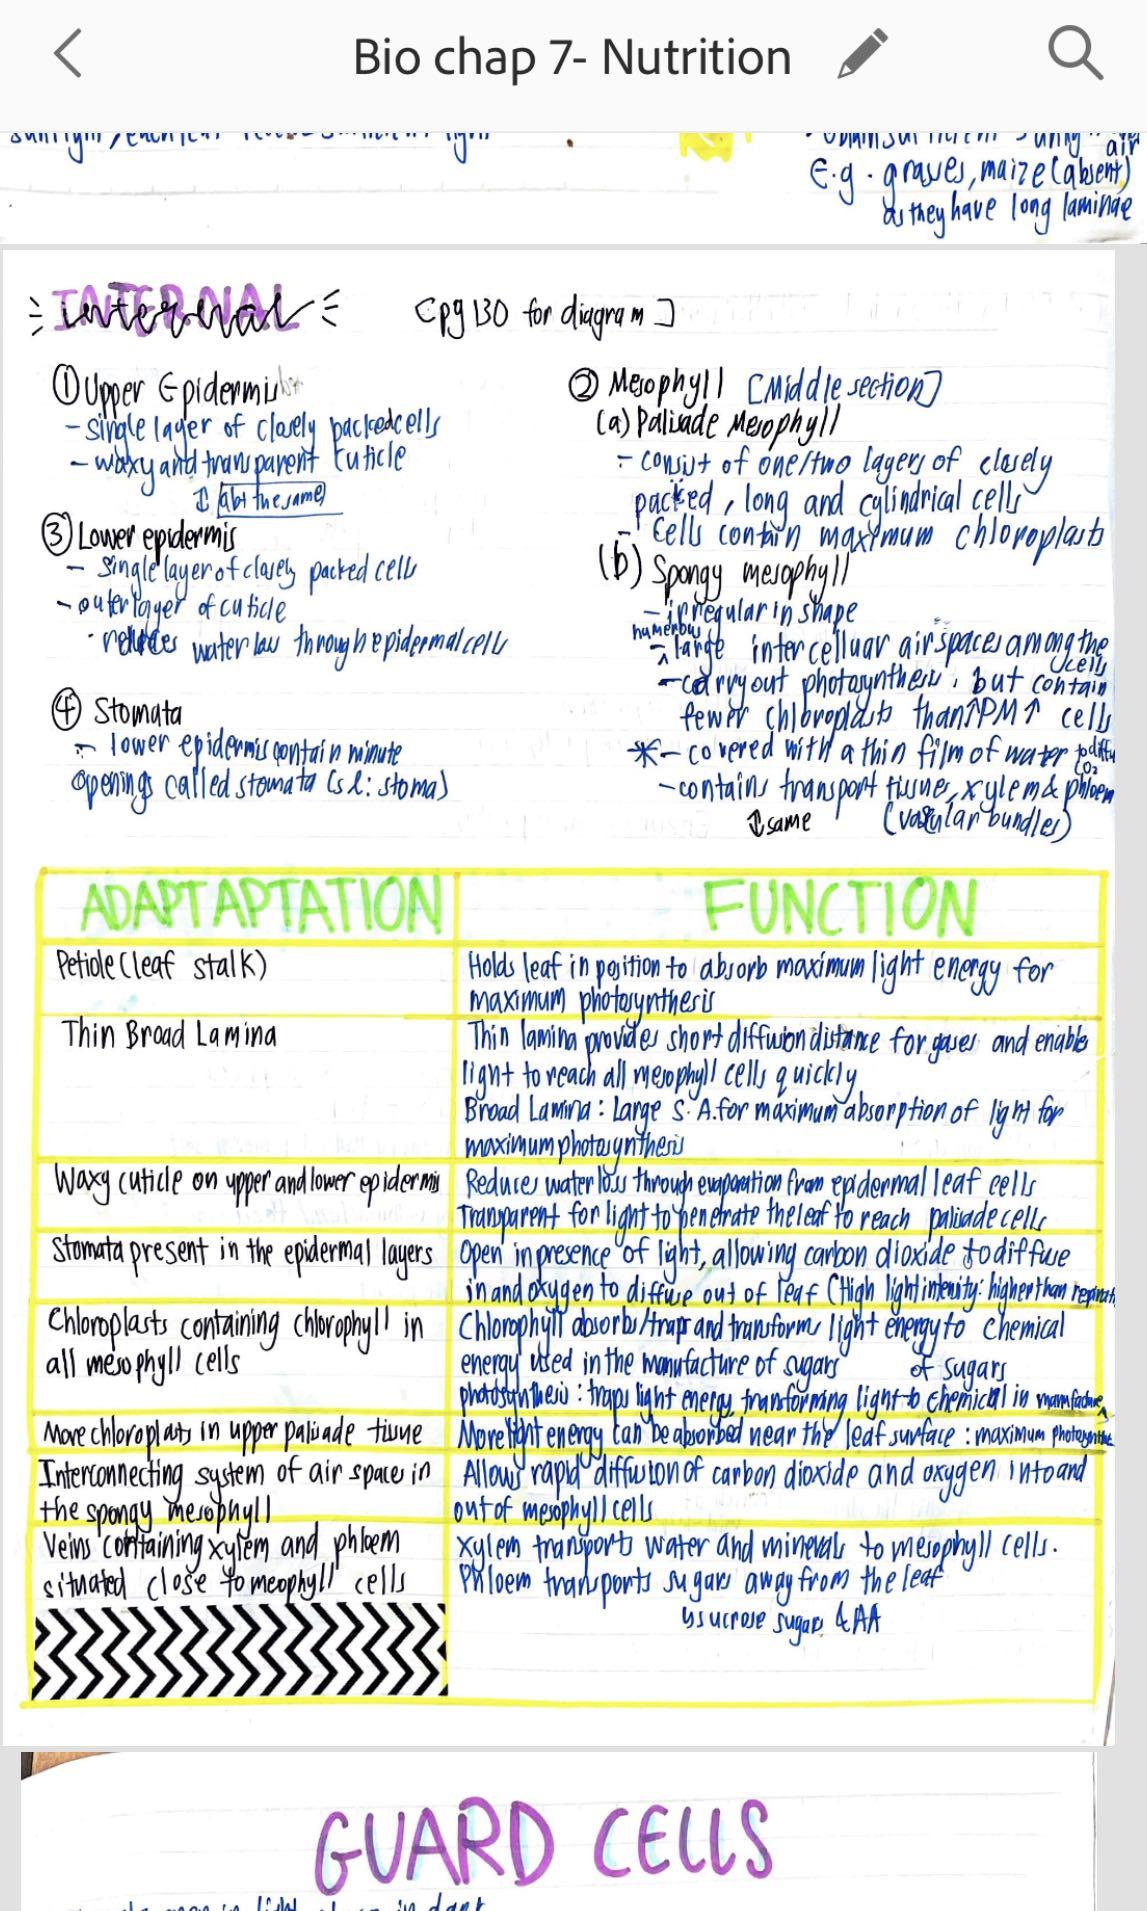 Bio chap 7- Nutrition
air
E.g. grasses, maize (absent)
as they have long laminae
INTERNAL
internal
[pg 130 for diagram]
① Upper Epidermis
- single layer of closely packed cells
- waxy and transparent cuticle
↕ abt the same
③ Lower epidermis
- Single layer of closely packed cells
- outer layer of cuticle
· reduces water loss through epidermal cells
④ Stomata
- lower epidermis contain minute
openings called stomata (sl: stoma)
② Mesophyll [Middle section]
(a) Palisade Mesophyll
- consist of one/two layers of closely
packed, long and cylindrical cells
- Cells contain maximum chloroplasts
(b) Spongy mesophyll
- irregular in shape
numerous
- ^ large intercelluar air spaces among the
cells
- carry out photosynthesis, but contain
fewer chloroplasts than ↑PM↑ cells
* - covered with a thin film of water to diffu
CO2
- contains transport tissues, xylem & phloem
↕ same (vascular bundles)
ADAPTAPTATION FUNCTION
Petiole (leaf stalk)
Holds leaf in position to absorb maximum light energy for
maximum photosynthesis
Thin Broad Lamina
Thin lamina provides short diffusion distance for gases and enables
light to reach all mesophyll cells quickly
Broad Lamina: Large S.A. for maximum absorption of light for
maximum photosynthesis
Waxy cuticle on upper and lower epidermis
Reduces water loss through evaporation from epidermal leaf cells
Transparent for light to penetrate the leaf to reach palisade cells
Stomata present in the epidermal layers
Open in presence of light, allowing carbon dioxide to diffuse
in and oxygen to diffuse out of leaf (High light intensity: higher than respirat
Chloroplasts containing chlorophyll in
all mesophyll cells
Chlorophyll absorbs/traps and transforms light energy to chemical
energy used in the manufacture of sugars of sugars
photosynthesis: traps light energy, transforming light to chemical in manufacture ^
More chloroplasts in upper palisade tissue
More light energy can be absorbed near the leaf surface: maximum photosynthesis
Interconnecting system of air spaces in
the spongy mesophyll
Allows rapid diffusion of carbon dioxide and oxygen into and
out of mesophyll cells
Veins containing xylem and phloem
situated close to meophyll cells
Xylem transports water and minerals to mesophyll cells.
Phloem transports sugars away from the leaf
↳ sucrose sugars & AA
GUARD CELLS